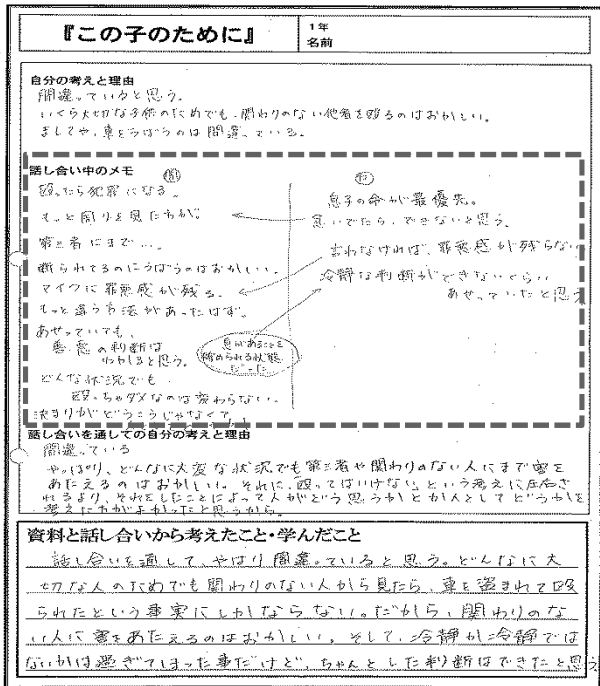 『この子のために』
1年
名前
自分の考えと理由
間違っていると思う。
いくら大切な子供のためでも、関わりのない他者を殴るのはおかしい。
ましてや、車をうばうのは間違っている。
話し合い中のメモ
殴ったら犯罪になる。
もっと周りを見た方が。
第三者にまで…。
断られてるのにうばうのはおかしい。
マイクに罪悪感が残る。
もっと違う方法があったはず。
あせっていても、
善・悪の判断は
つかめると思う。
どんな状況でも
殴っちゃダメなのは変わらない。
決まりがどうこうじゃなくて、
息子の命が最優先。
急いでたら、できないと思う。
言わなければ、罪悪感が残らない
冷静な判断ができないくらい
あせっていたと思う
息があることを
確められる状態
だった
話し合いを通しての自分の考えと理由
間違っている
やっぱり、どんなに大変な状況でも第三者や関わりのない人にまで害を
あたえるのはおかしい。それに、殴ってはいけないという考えに左右さ
れるより、それをしたことによって人がどう思うかとか人としてどうかを
考えた方がよかったと思うから。
資料と話し合いから考えたこと・学んだこと
話し合いを通して、やはり間違っていると思う。どんなに大
切な人のためでも関わりのない人から見たら、車を盗まれて殴
られたという事実にしかならない。だから、関わりのな
い人に害をあたえるのはおかしい。そして、冷静か冷静では
ないかは過ぎてしまった事だけど、ちゃんとした判断はできたと思う